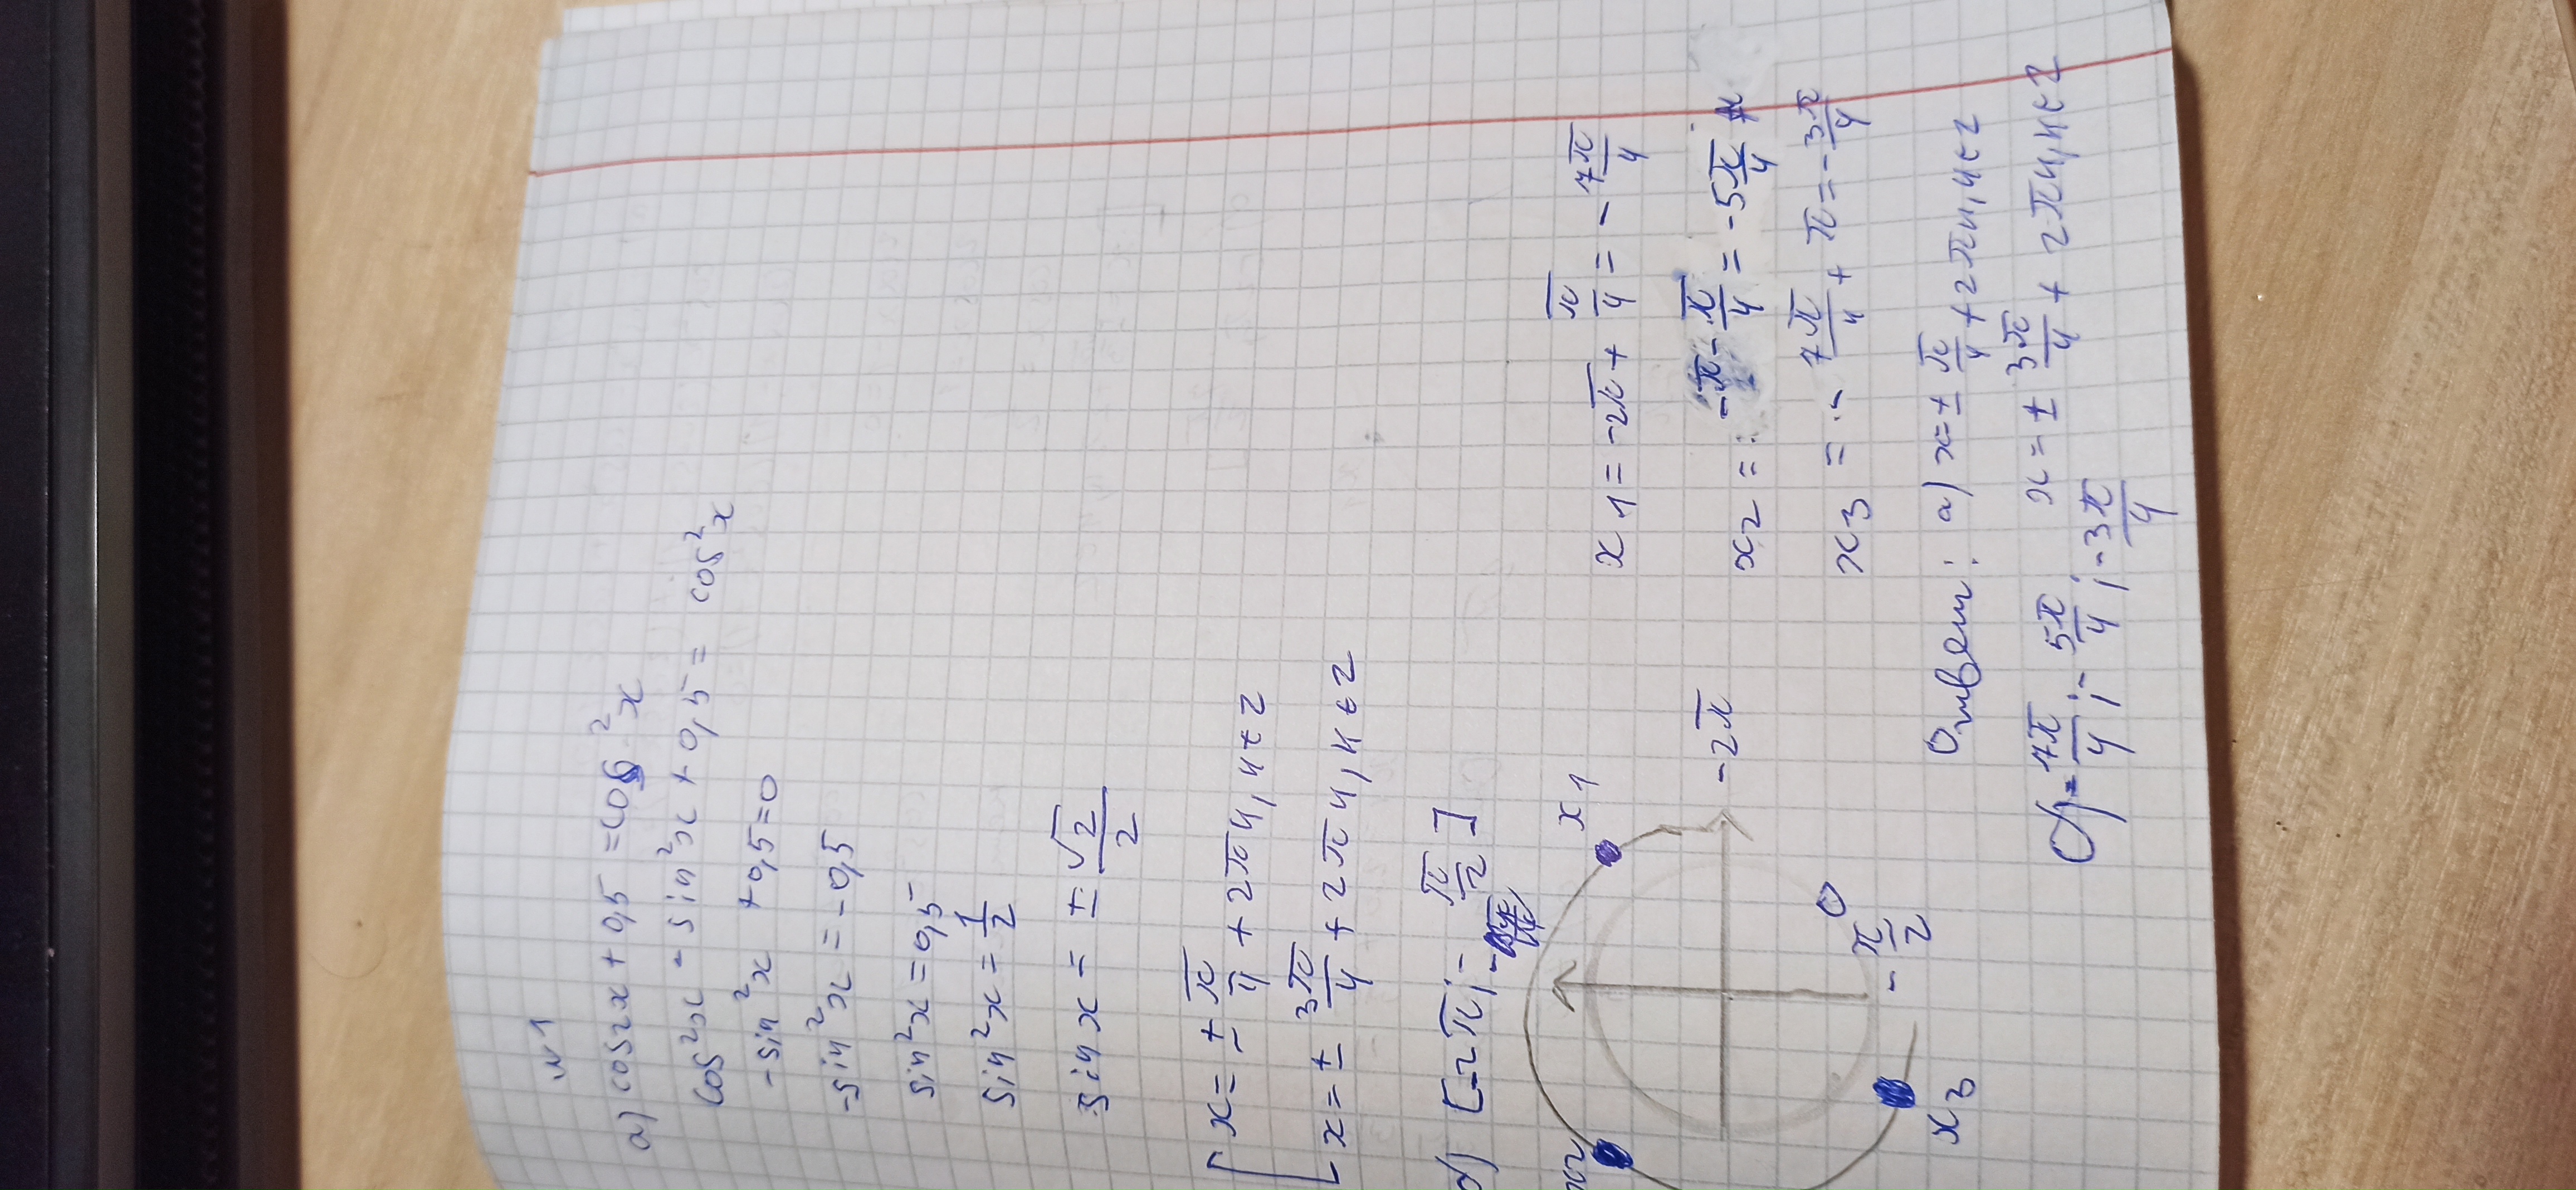 № 1
а) cos2x + 0,5 = cos²x
cos²x - sin²x + 0,5 = cos²x
-sin²x + 0,5 = 0
-sin²x = -0,5
sin²x = 0,5
sin²x = 1/2
sin x = ± √2/2
[ x = ± π/4 + 2πn, n ∈ Z
x = ± 3π/4 + 2πn, n ∈ Z
б) [-2π; -π/2]
x2
x1
-2π
-π/2
x3
x1 = -2π + π/4 = -7π/4
x2 = -π - π/4 = -5π/4
x3 = -7π/4 + π = -3π/4
Ответ: а) x = ± π/4 + 2πn, n ∈ Z
x = ± 3π/4 + 2πn, n ∈ Z
б) -7π/4; -5π/4; -3π/4